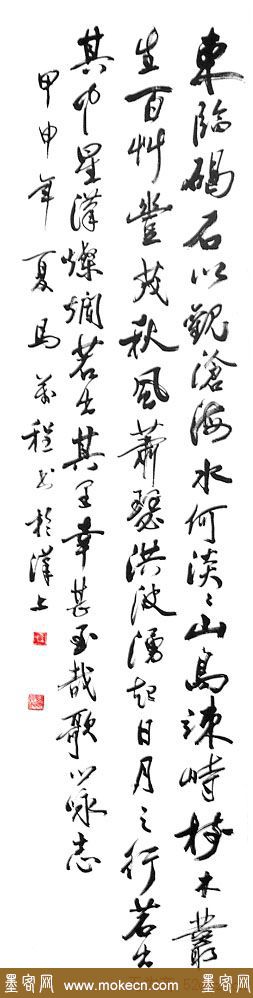 東臨碣石以觀滄海水何淡〻山島竦峙樹木叢
生百艸豐茂秋風蕭瑟洪波湧起日月之行若出
其中星漢燦爛若出其里幸甚至哉歌以詠志
甲申年夏馬萬程书於漢上
墨客网 www.mokecn.com 墨客网